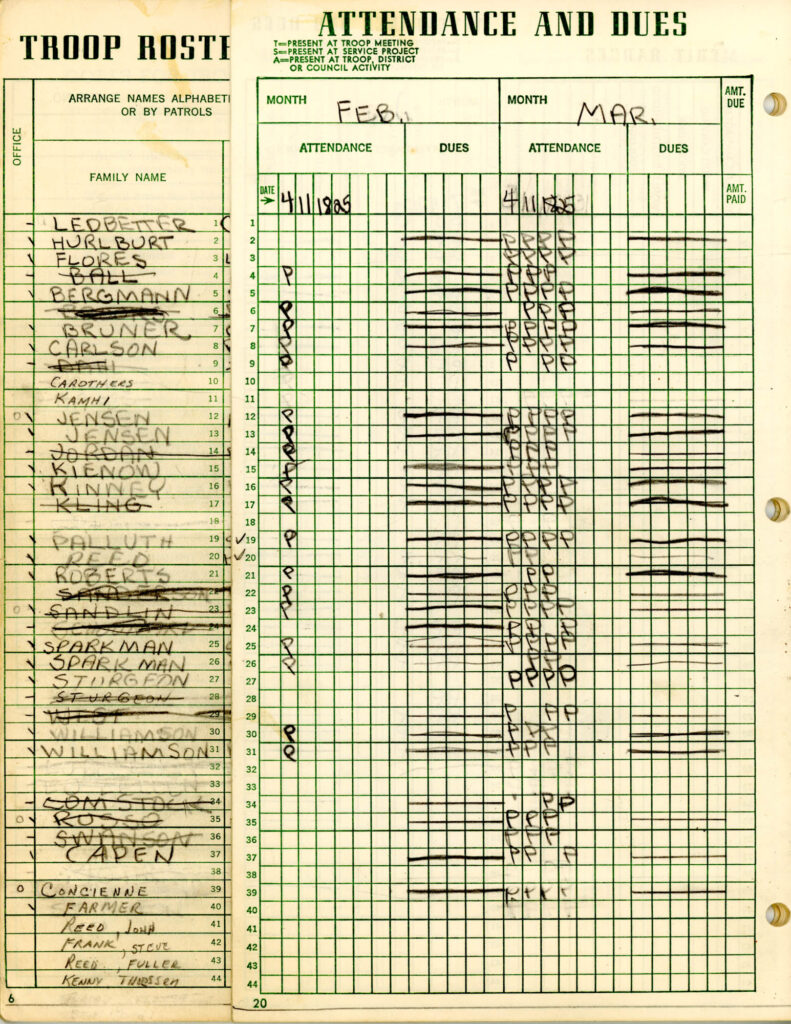 TROOP ROSTE
ARRANGE NAMES ALPHABETI
OR BY PATROLS
OFFICE
FAMILY NAME
LEDBETTER 1
HURLBURT 2
FLORES 3
BALL 4
BERGMANN 5
6
BRUNER 7
CARLSON 8
9
CAROTHERS 10
KAMHI 11
JENSEN 12
JENSEN 13
JORDAN 14
KIENOW 15
KINNEY 16
KLING 17
18
PALLUTH 19
REED 20
ROBERTS 21
SANDERSON
SANDLIN 23
24
SPARKMAN 25
SPARKMAN 26
STURGEON 27
STURGEON 28
WEST 29
WILLIAMSON 30
WILLIAMSON 31
32
33
COMSTOCK 34
RUSSO 35
SWANSON 36
CAPEN 37
38
CONCIENNE 39
FARMER 40
REED, JOHN 41
FRANK, STEVE 42
REED, FULLER 43
KENNY 44
6
ATTENDANCE AND DUES
T=PRESENT AT TROOP MEETING
S=PRESENT AT SERVICE PROJECT
A=PRESENT AT TROOP, DISTRICT
OR COUNCIL ACTIVITY
MONTH FEB. MONTH MAR. AMT. DUE
ATTENDANCE DUES ATTENDANCE DUES
DATE 4 11 18 25 4 11 18 25 AMT. PAID
1
2 P P P P
3 P P P P
4 P P P P
5 P P P P
6 P P P P
7 P P P P P
8 P P P P P
9 P P P P
10
11
12 P P P P P
13 P P P P P
14 P P P P
15 P P P P
16 P P P P P
17 P P P P P
18
19 P P P P P
20 P P
21 P P P
22 P P P P
23 P P P P P
24 P P P
25 P P P P
26 P P P
27 P P P P
28
29 P P P
30 P P P P
31 P P P P
32
33
34 P P
35 P P P
36 P P P
37 P P P
38
39 P P P P
40
41
42
43
44
20